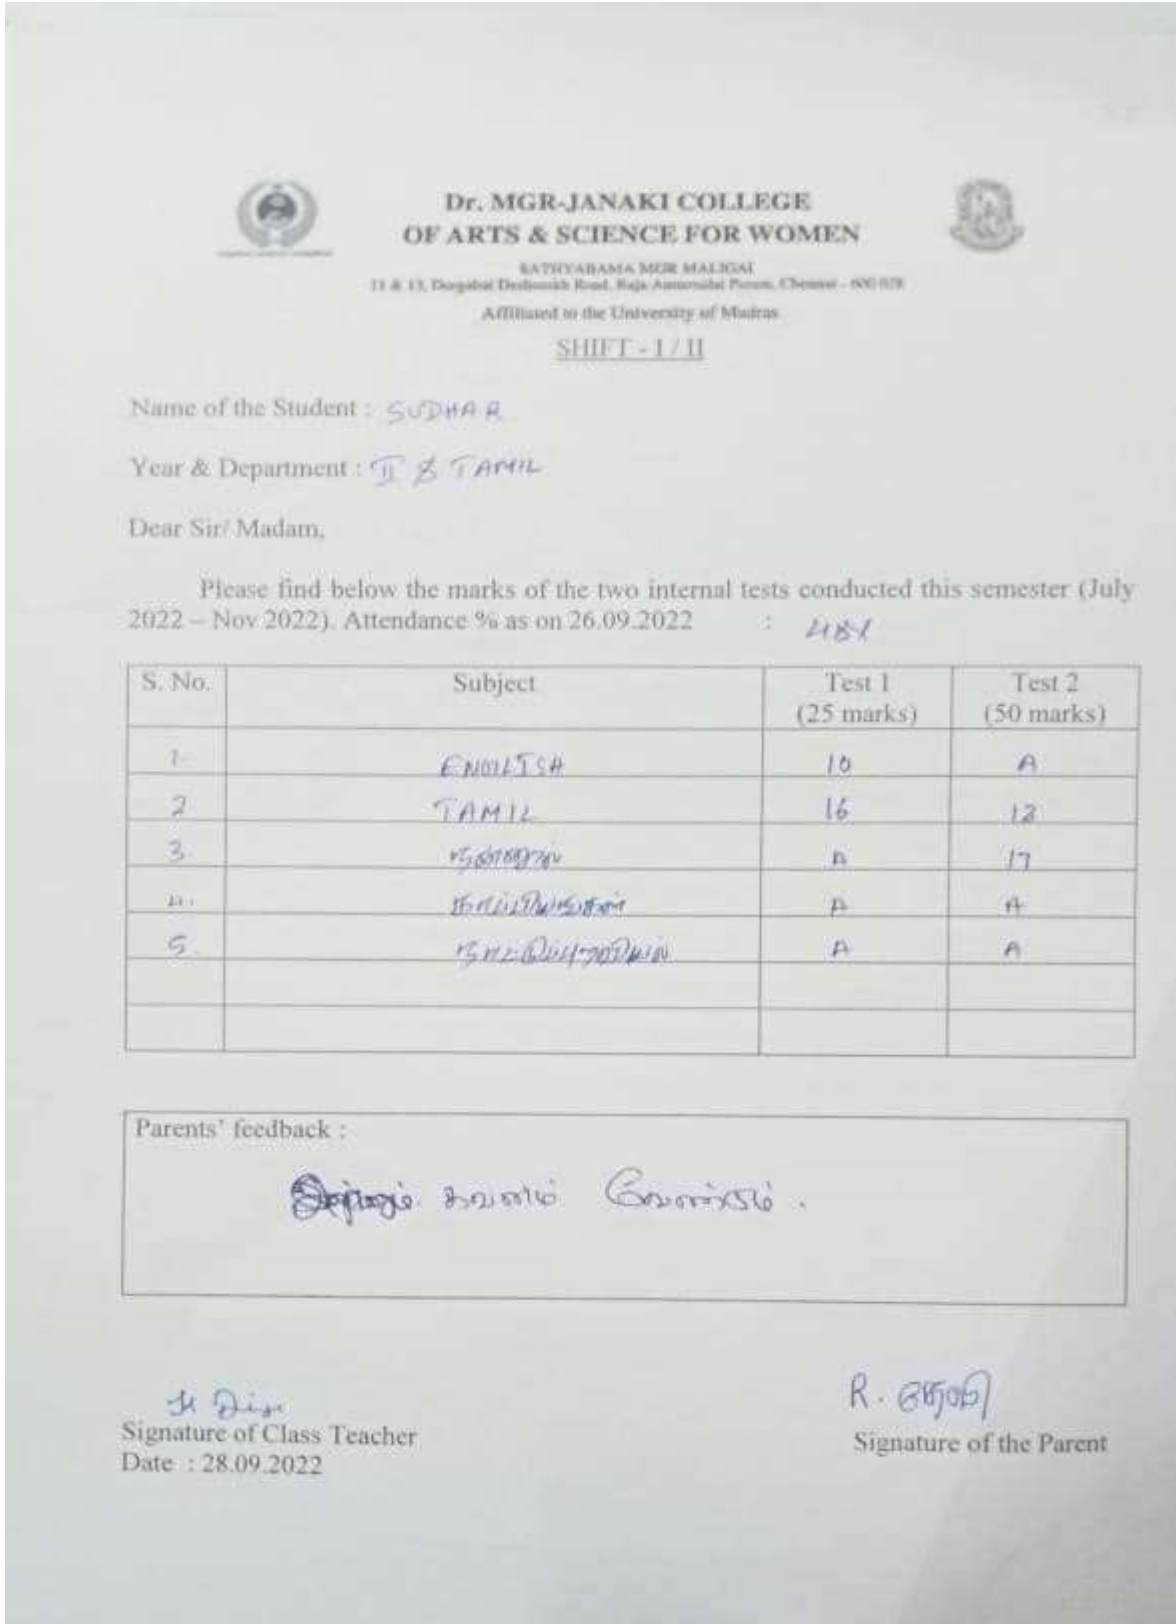 Dr. MGR-JANAKI COLLEGE
OF ARTS & SCIENCE FOR WOMEN
SATHYABAMA MGR MALIGAI
11 & 13, Durgabai Deshmukh Road, Raja Annamalai Puram, Chennai - 600 028
Affiliated to the University of Madras
SHIFT - I / II
Name of the Student : SUDHA R
Year & Department : II & TAMIL
Dear Sir/ Madam,
Please find below the marks of the two internal tests conducted this semester (July
2022 – Nov 2022). Attendance % as on 26.09.2022 :
S. No. Subject Test 1 Test 2
(25 marks) (50 marks)
1. ENGLISH 10 A
2 TAMIL 16
3. நன்னூல் A 17
4. காப்பியங்கள் A A
5. நாட்டுப்புறவியல் A A
Parents' feedback :
கவனம் வேண்டும் .
R. தேவி
Signature of Class Teacher Signature of the Parent
Date : 28.09.2022